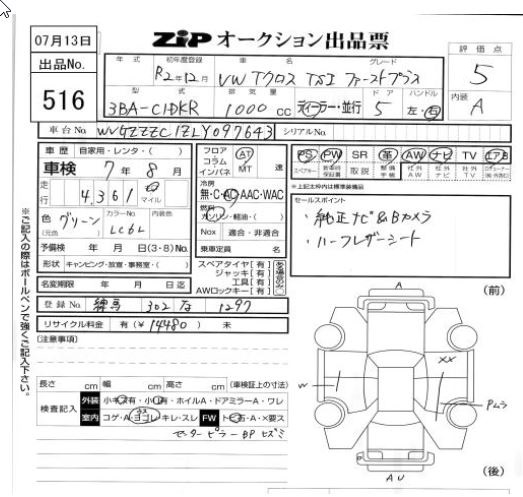 07月13日
ZiP オークション出品票
出品No.
516
年式 初年度登録 車名 グレード
R2年12月 VW Tクロス TSI ファーストプラス
型式 排気量 ドア ハンドル
3BA-C1DKR 1000 cc ディーラー・並行 5 左・右
評価点
5
内装
A
車台No. WVGZZZC1ZLY097643 シリアルNo.
車歴 自家用・レンタ・( )
車検 7年8月
走行 4,361 km マイル
色 グリーン カラーNo. LC6L 内装色
(元色)
予備検 年 月 日(3・8) No.
形状 キャンピング・放室・事務室・( )
名変期限 年 月 日迄
フロア コラム インパネ AT MT 速
冷房
無・C・AC・AAC・WAC
燃料
ガソリン・軽油・( )
Nox 適合・非適合
乗車定員 名
スペアタイヤ[有]
ジャッキ[有]
工具[有]
AWロックキー[有]
PS PW SR 革 AW ナビ TV エアB
スペアキー 新車時保証書 取説 整備手帳 社外AW 社外ナビ 社外TV
※上記太枠内は標準装備品
セールスポイント
・純正ナビ&Bカメラ
・ハーフレザーシート
登録No. 練馬 302 な 1297
リサイクル料金 有(¥14480) 未
(注意事項)
※ご記入の際はボールペンで強くご記入下さい。
長さ cm 幅 cm 高さ cm (車検証上の寸法)
検査記入 外装 小キズ有・小凹有・ホイルA・ドアミラーA・ワレ
室内 コゲ・A・ヨゴレ・キレ・スレ FW トビ石・A・×要ス
センターピラーBP ヒズミ
A
(前)
W
XX
Pムラ
(後)
AU